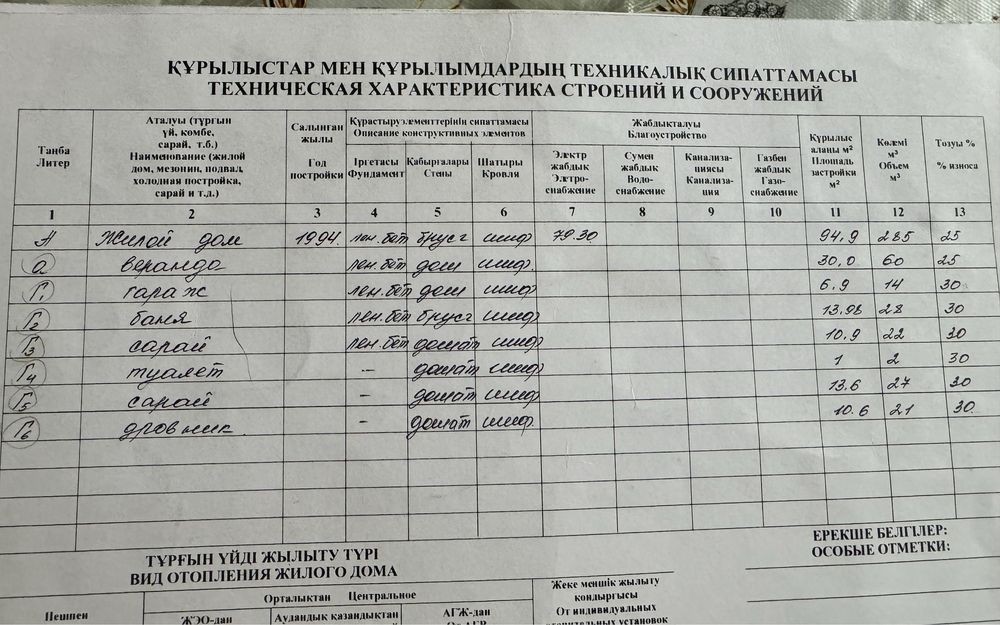 ҚҰРЫЛЫСТАР МЕН ҚҰРЫЛЫМДАРДЫҢ ТЕХНИКАЛЫҚ СИПАТТАМАСЫ
ТЕХНИЧЕСКАЯ ХАРАКТЕРИСТИКА СТРОЕНИЙ И СООРУЖЕНИЙ
Таңба Литер
Аталуы (тұрғын үй, көмбе, сарай, т.б.) Наименование (жилой дом, мезонин, подвал, холодная постройка, сарай и т.д.)
Салынған жылы Год постройки
Құрастыруэлементтерінің сипаттамасы
Описание конструктивных элементов
Іргетасы Фундамент
Қабырғалары Стены
Шатыры Кровля
Жабдықталуы
Благоустройство
Электр жабдык Элетро-снабжение
Сумен жабдык Водо-снабжение
Канализа-циясы Канализа-ция
Газбен жабдык Газо-снабжение
Құрылыс аланы м² Площадь застройки м²
Көлемі м³ Объем м³
Тозуы % % износа
1 2 3 4 5 6 7 8 9 10 11 12 13
А Жилой дом 1994. лен.бет брусч шиф 79.30 94,9 285 25
а веранда лен.бет дощ шиф. 30,0 60 25
Г1 гараж лен.бет дощ шиф 6.9 14 30
Г2 баня лен.бет брусч шиф 13,98 28 30
Г3 сарай лен.бет дощат шиф 10,9 22 30
Г4 туалет - дощат шиф 1 2 30
Г5 сарай - дощат шиф 13.6 27 30
Г6 дровник - дощат шиф. 10.6 21 30
ЕРЕКШЕ БЕЛГІЛЕР:
ОСОБЫЕ ОТМЕТКИ:
ТҰРҒЫН ҮЙДІ ЖЫЛЫТУ ТҮРІ
ВИД ОТОПЛЕНИЯ ЖИЛОГО ДОМА
Пешпен
Орталыктан Центральное
ЖЭО-дан
Аудандық қазандықтан
АГЖ-дан
От АГВ
Жеке меншік жылыту кондырғысы
От индивидуальных
отопительных установок